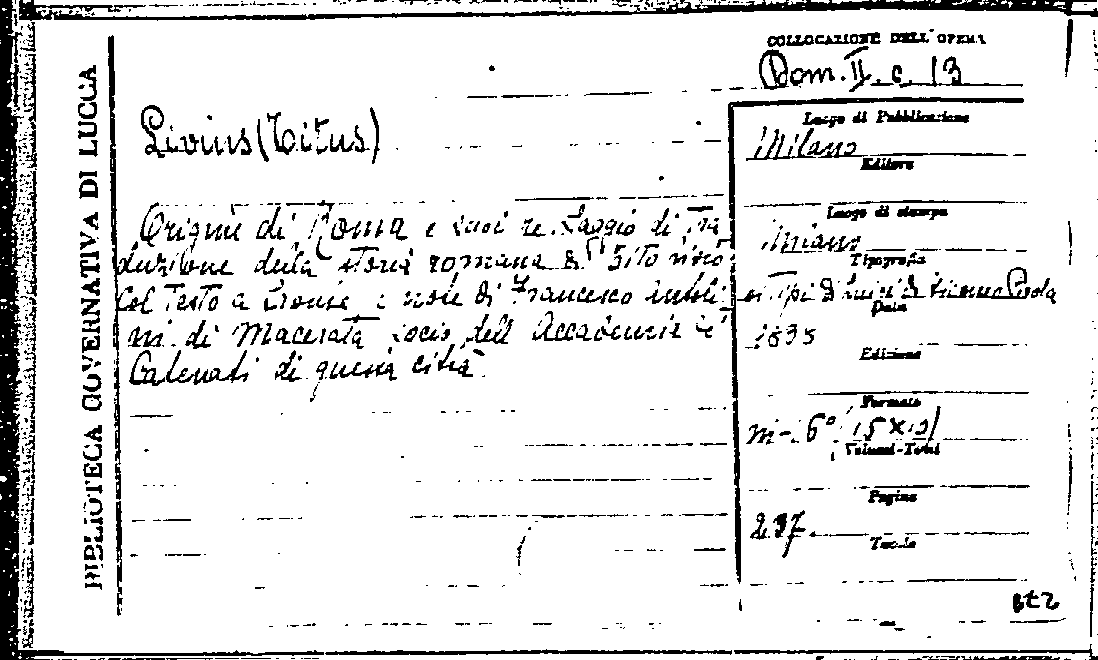 BIBLIOTECA GOVERNATIVA DI LUCCA
COLLOCAZIONE DELL'OPERA
Dom. II. c. 13
Livius (Titus)
Origine di Roma e suoi re. Saggio di Tra
duzione della storia romana di Tito Livio
col testo a fronte e note di Francesco Antoli
ni di Macerata socio dell'Accademia de'
Catenati di questa città
Luogo di Pubblicazione
Milano
Editore
Luogo di stampa
Milano
Tipografia
Data
Edizione
Formato
in-
Volumi-Tomi
Pagine
237
Tavole